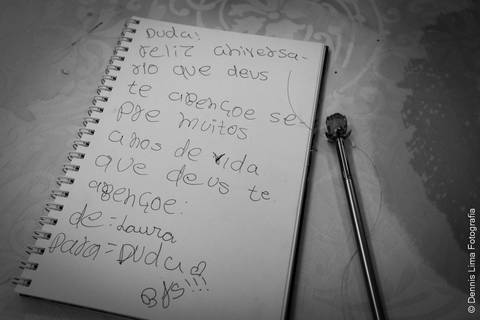 DUDA:
feliz aniversa-
rio que deus
te abençoe se-
pre muitos
anos de vida
que deus te
abençoe:
de = Laura
para = DUDA
Bjs!!!
© Dennis Lima Fotografia